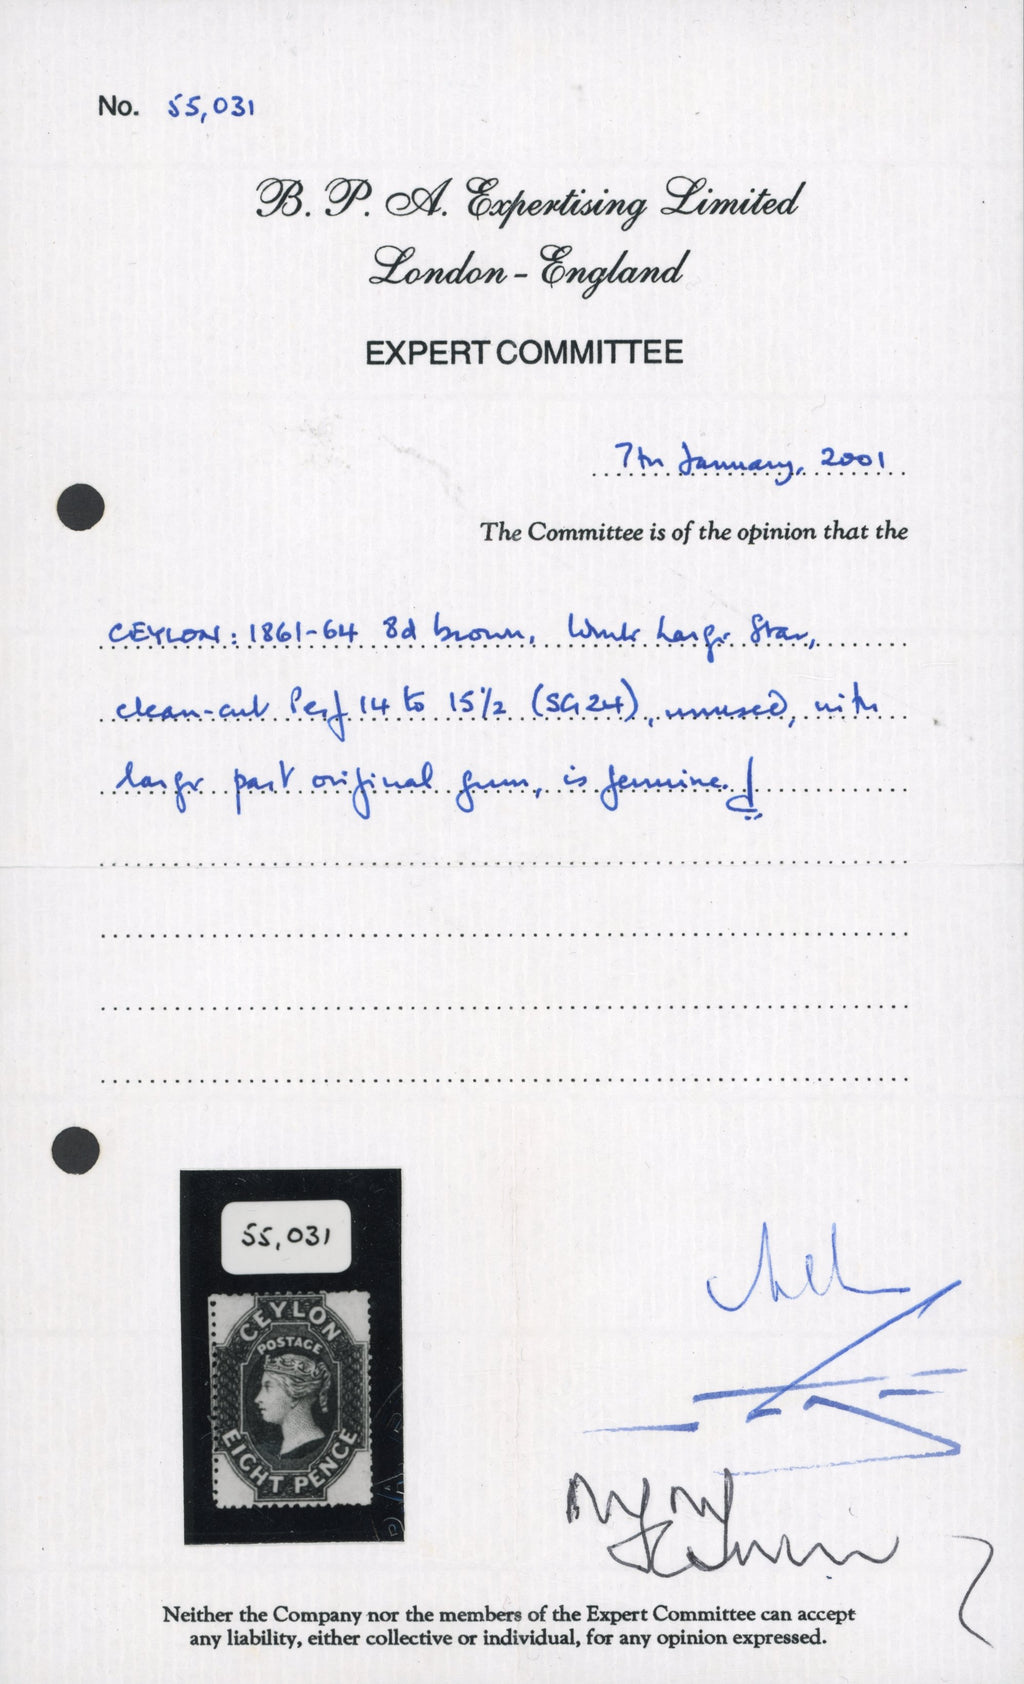 No. 55,031
B. P. A. Expertising Limited
London - England
EXPERT COMMITTEE
7th January, 2001
The Committee is of the opinion that the
CEYLON: 1861-64 8d brown, Wmk Large Star,
clean-cut Perf 14 to 15½ (SG24), unused, with
large part original gum, is genuine.
55,031
CEYLON
POSTAGE
EIGHT PENCE
Neither the Company nor the members of the Expert Committee can accept
any liability, either collective or individual, for any opinion expressed.